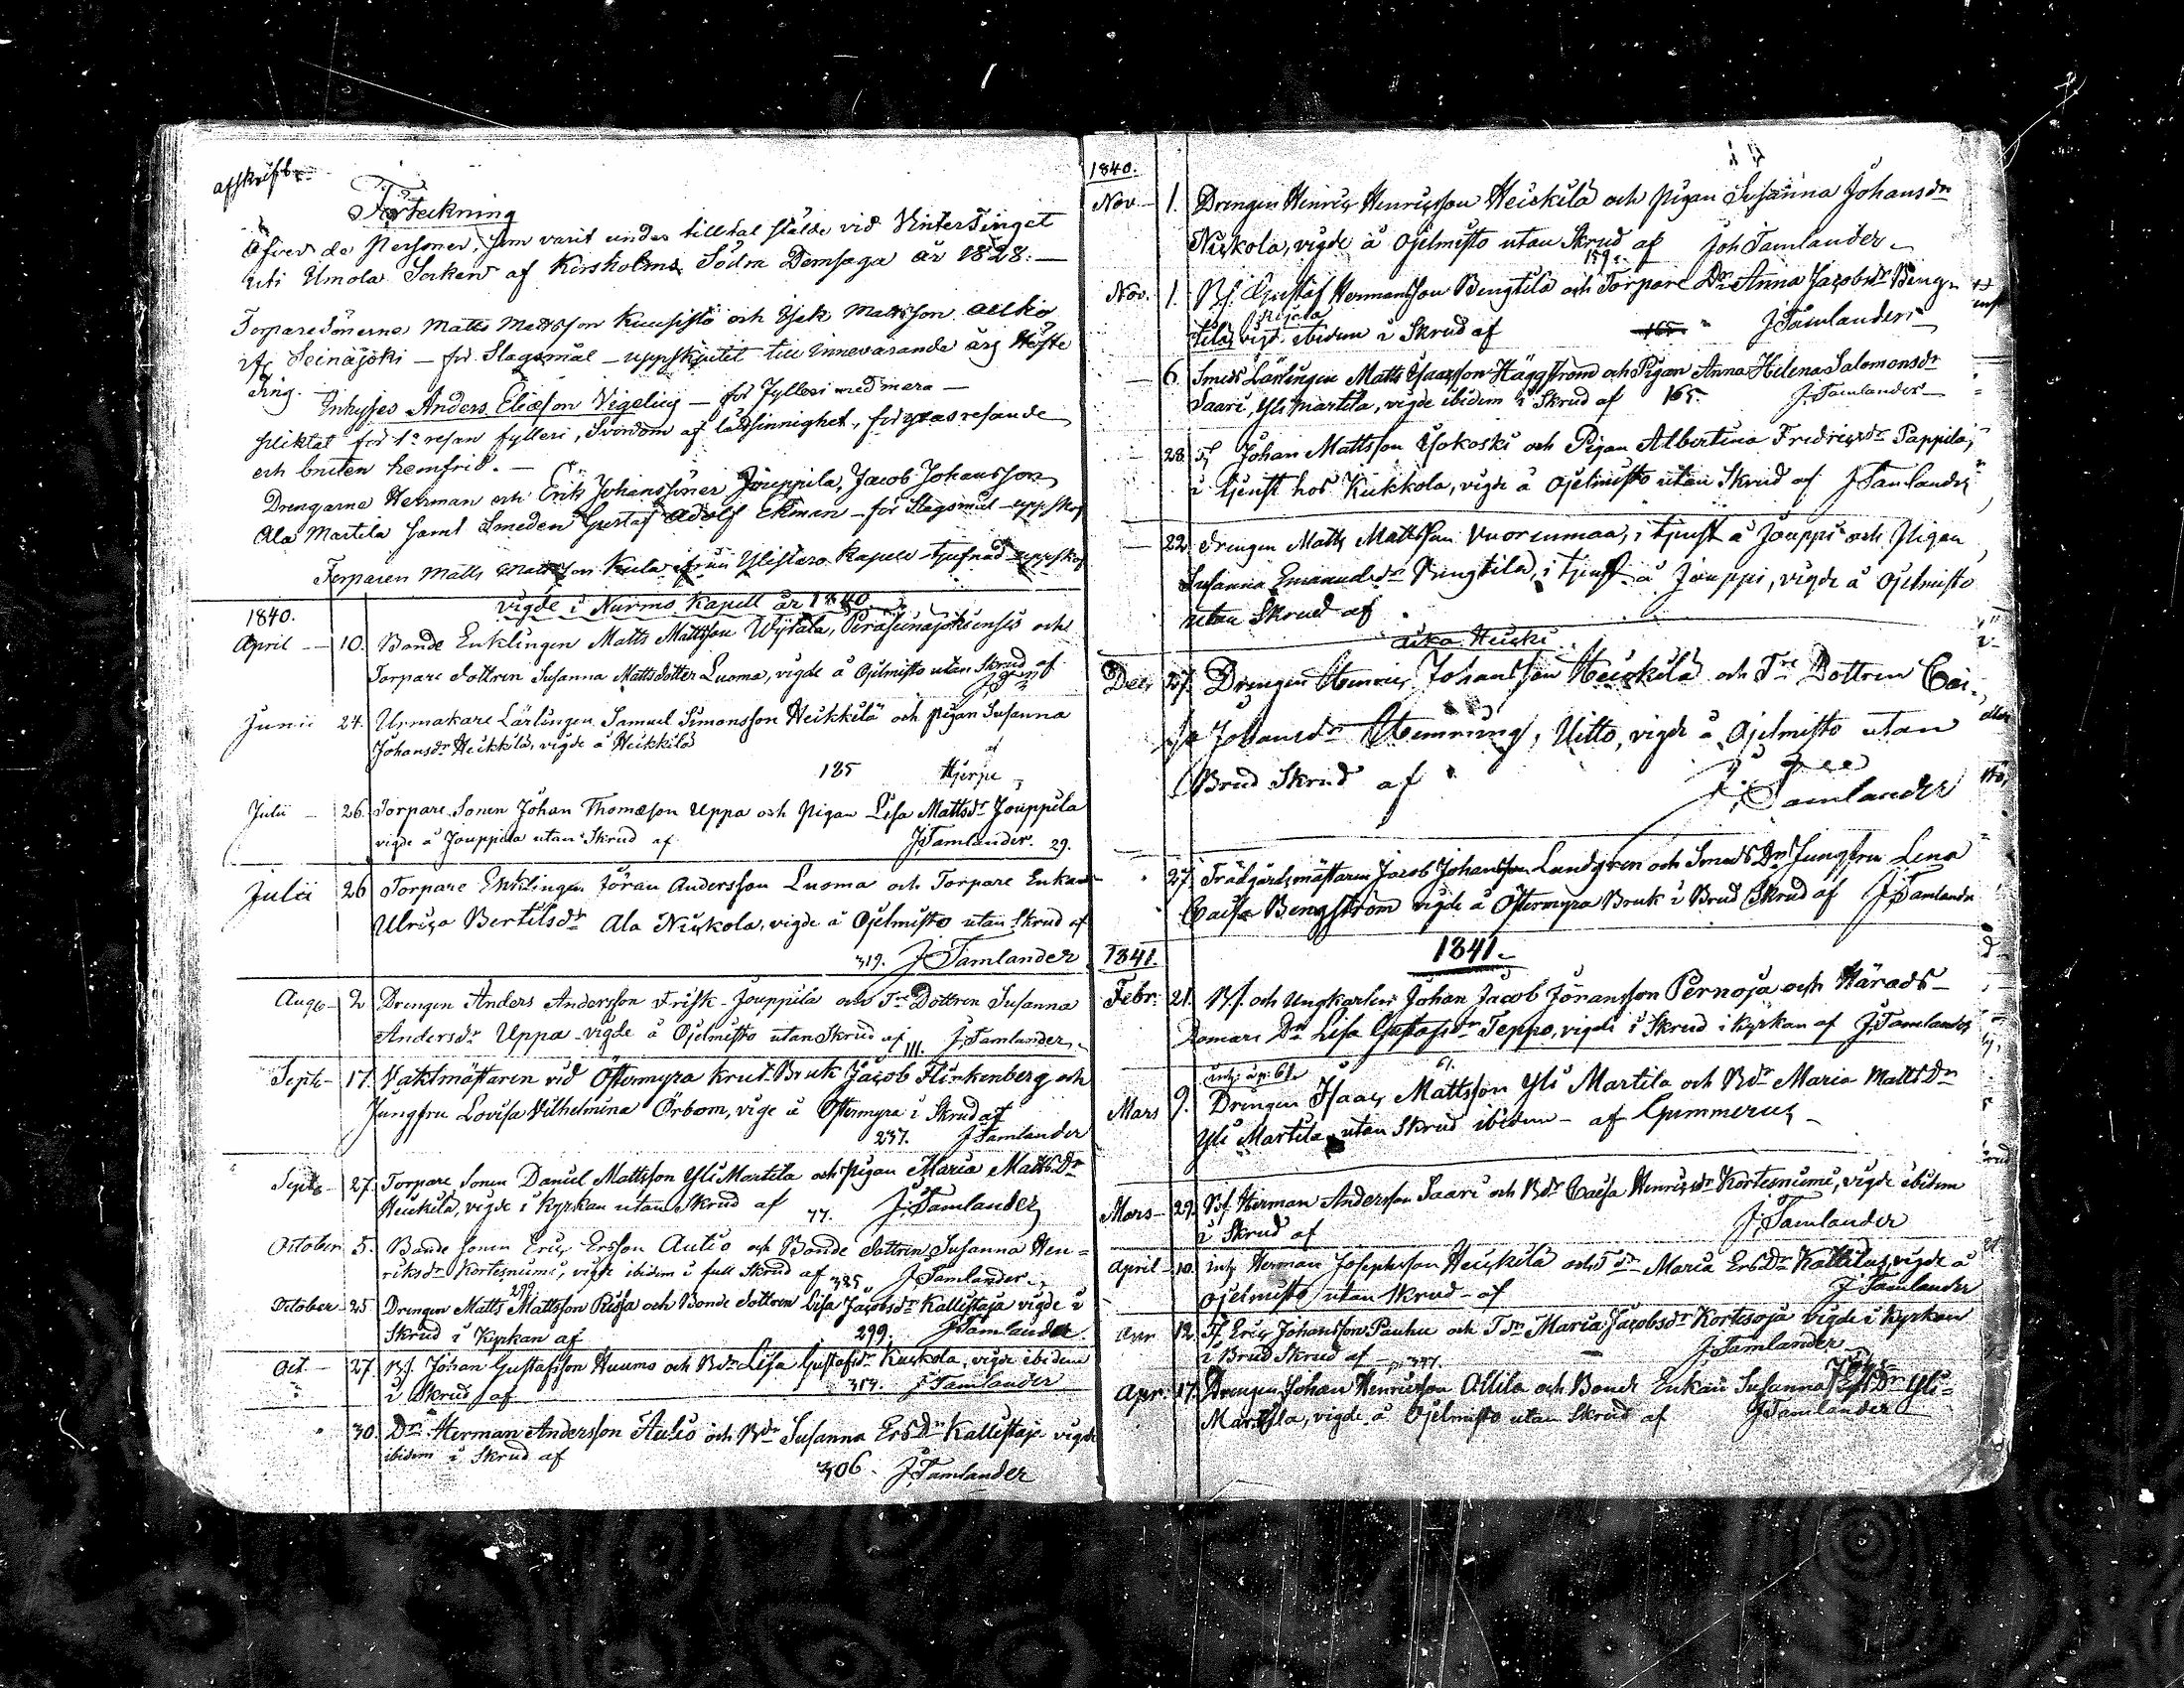 afskrift
Förteckning
öfver de Personer, som varit under tilltal stälde vid Vintertinget
uti Umola Socken af Korsholms Södra Domsaga år 1828. —
Torparesönerne Matts Mattsson Kuusistö och Isak Mattsson
Seinäjoki — för Slagsmål — uppskjutit till innevarande års Höste
Ting. —
Inhyses Anders Eliæson Vigelius — för Fylleri med mera —
pliktat för 1a resan fylleri, Svordom af lättsinnighet,
och bruten hemfrid. —
Drengarne Herman och Erik Johanssöner Jouppila, Jacob Johansson
Ala Martila samt Smeden Gustaf Adolf Ekman — för Slagsmål — uppskof
Torparen Matts Mattsson Kula från Ylistaro Kapell — tjufnad — uppskof
vigde i Nurmo Kapell år 1840
1840.
April — 10. Bonde Enklingen Matts Mattsson Wijtala, Peräseinäjokiensis och
Torpare dottren Susanna Mattsdotter Luoma, vigde å Ojelmisto utan Skrud af
Junii 24. Urmakare Lärlingen Samuel Simonsson Heikkilä och pigan Susanna
Johansdr Heikkilä, vigde å Heikkilä
af
185 Hjerpe
Julii — 26. Torpare Sonen Johan Thomæson Uppa och pigan Lisa Mattsdr Jouppila
vigde å Jouppila utan Skrud af J. Tamlander. 29.
Julii 26 Torpare Enklingen Jöran Andersson Luoma och Torpare Enkan
Ulrica Bertilsdr Ala Niskola, vigde å Ojelmisto utan Skrud af
319. J. Tamlander
Aug. — 2 Drengen Anders Andersson Frisk Jouppila och Tre Dottren Susanna
Andersdr Uppa vigde å Ojelmisto utan Skrud af 111. J. Tamlander
Septr — 17. Vaktmästaren vid Östermyra Krut-Bruk Jacob Flinkenberg och
Jungfru Lovisa Vilhelmina Örbom, vigde å Östermyra i Skrud af
237. J. Tamlander
Septr — 27. Torpare Sonen Daniel Mattsson Yli Martila och pigan Maria MattsDr
Heikkilä, vigde i Kyrkan utan Skrud af 77. J. Tamlander
October 5. Bonde Sonen Eric Ersson Autio och Bonde dottren Susanna Hen=
riksdr Kortesniemi, vigde ibidem i full Skrud af 325. J. Tamlander
299
October 25 Drengen Matts Mattsson Rissa och Bonde dottren Lisa Jacobsdr Kallistaja vigde i
Skrud i Kyrkan af 299. J. Tamlander.
Oct — 27. Bs. Johan Gustafsson Huumo och Bdr Lisa Gustafsdr Kuckola, vigde ibidem
i Skrud af 314. J. Tamlander
30. Dr. Herman Andersson Autio och Bdr Susanna ErsDr Kallistaja vigde
ibidem i Skrud af
306. J. Tamlander
1840.
Nov — 1. Drengen Henric Henricsson Heickilä och pigan Susanna Johansdr
Niskola, vigde å Ojelmisto utan Skrud af Joh Tamlander
159.
Nov. 1. Bs. Gustaf Hermansson Bengtila och Torpare Dr Anna Jacobsdr Beng=
tila, vigd. ibidem i Skrud af J. Tamlander
— 6. Smeds Lärlingen Matts Isacsson Häggström och Pigan Anna Helena Salomonsdr
Saari, Yli Martila, vigde ibidem i Skrud af 165. J. Tamlander
28 Johan Mattsson Isokoski och Pigan Albertina Fredricsdr Pappila,
i tjenst hos Kuckkola, vigde å Ojelmisto utan Skrud af J Tamlander
— 22 Drengen Matts Mattsson Vuorenmaa, i tjenst å Jouppi och Pigan
Susanna Emanuelsdr Bengtila, i tjenst å Jouppi, vigde å Ojelmisto
utan Skrud af
Dec. 27. Drengen Henric Johansson Heickilä och Tre Dottren Cai=
sa Johansdr Hemming, Uitto, vigde å Ojelmisto utan
Brud Skrud af
J. Tamlander
27 Trädgårdsmästaren Jacob Johansson Lundgren och Smeds Dr Jungfru Lena
Caisa Bengström vigde å Östermyra Bruk i Brud Skrud af J. Tamlander
1841.
1841.
Febr. 21. Bs. och Ungkarlen Johan Jacob Jöransson Pernoja och Härads=
Domare Dr Lisa Gustafsdr Teppo, vigde i Skrud i Kyrkan af J. Tamlander
61.
Mars 9. Drengen Isaac Mattsson Yli Martila och Bdr Maria MattsDr
Yli Martila utan Skrud ibidem — af Gummerus
Mars — 29. Bs. Herman Andersson Saari och Bdr Caisa Henricsdr Kortesniemi, vigde ibidem
i Skrud af J. Tamlander
April — 10. inh. Herman Josephsson Heickilä och Tdr Maria ErsDr Kattilus, vigde å
Ojelmisto utan Skrud — af J. Tamlander
Apr. 12. Ts. Eric Johansson Pauhu och Tdr Maria Jacobsdr Kortesoja vigde i Kyrkan
i Brud Skrud af J. Tamlander
Apr. 17. Drengen Johan Henricsson Ollila och Bonde Enkan Susanna Yli=
Martila, vigde å Ojelmisto utan Skrud af J Tamlander